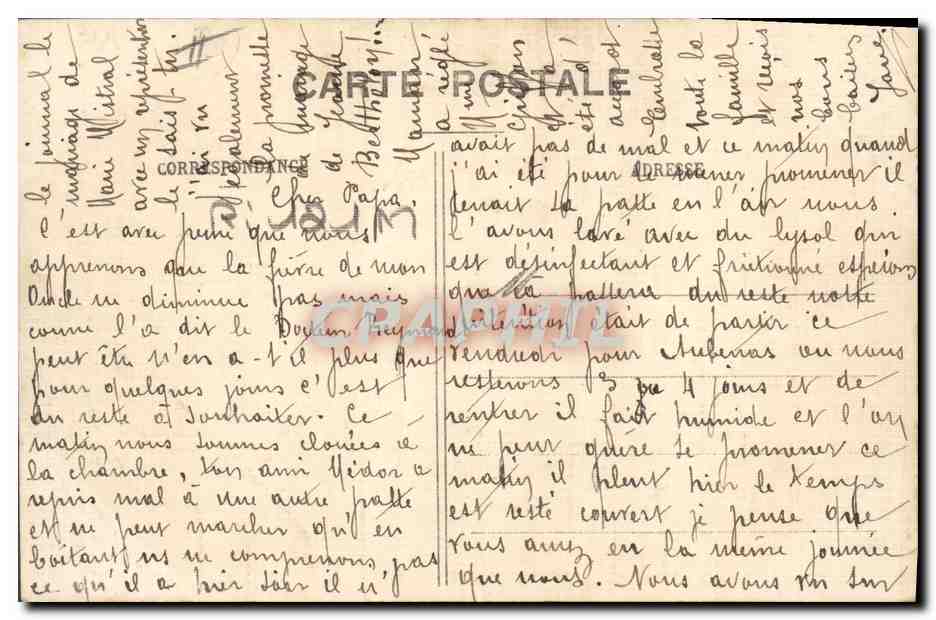 CARTE POSTALE
CORRESPONDANCE
ADRESSE
Cher Papa.
C'est avec peine que nous
apprenons que la fièvre de mon
Oncle ne diminue pas mais
comme l'a dit le Docteur Reymond
peut être n'en a-t'il plus que
pour quelques jours c'est
du reste à souhaiter. Ce
matin nous sommes clouées à
la chambre, ton ami Médor a
repris mal à une autre patte
et ne peut marcher qu'en
boitant ns ne comprenons pas
ce qu'il a hier soir il n'
avait pas de mal et ce matin quand
j'ai été pour le mener promener il
tenait sa patte en l'air nous
l'avons lavé avec du lysol qui
est désinfectant et frictionné espérons
que ça passera du reste notre
intention était de partir ce
vendredi pour Aubenas ou nous
resterons 3 ou 4 jours et de
rentrer il fait humide et l'on
ne peut guère se promener ce
matin il pleut hier le temps
est resté couvert je pense que
vous aurez eu la même journée
que nous. Nous avons vu sur
le journal le
mariage de
Marie Mistral
avec un répétiteur
le sais-tu.
J'ai vu
également
la promesse
de mariage
de Jeanne
Berthoy!
Maman
a réglé
M
et a
été
au pot
Embrasse
toute la
famille
et reçois
nos
bons
baisers
CPAPHIL